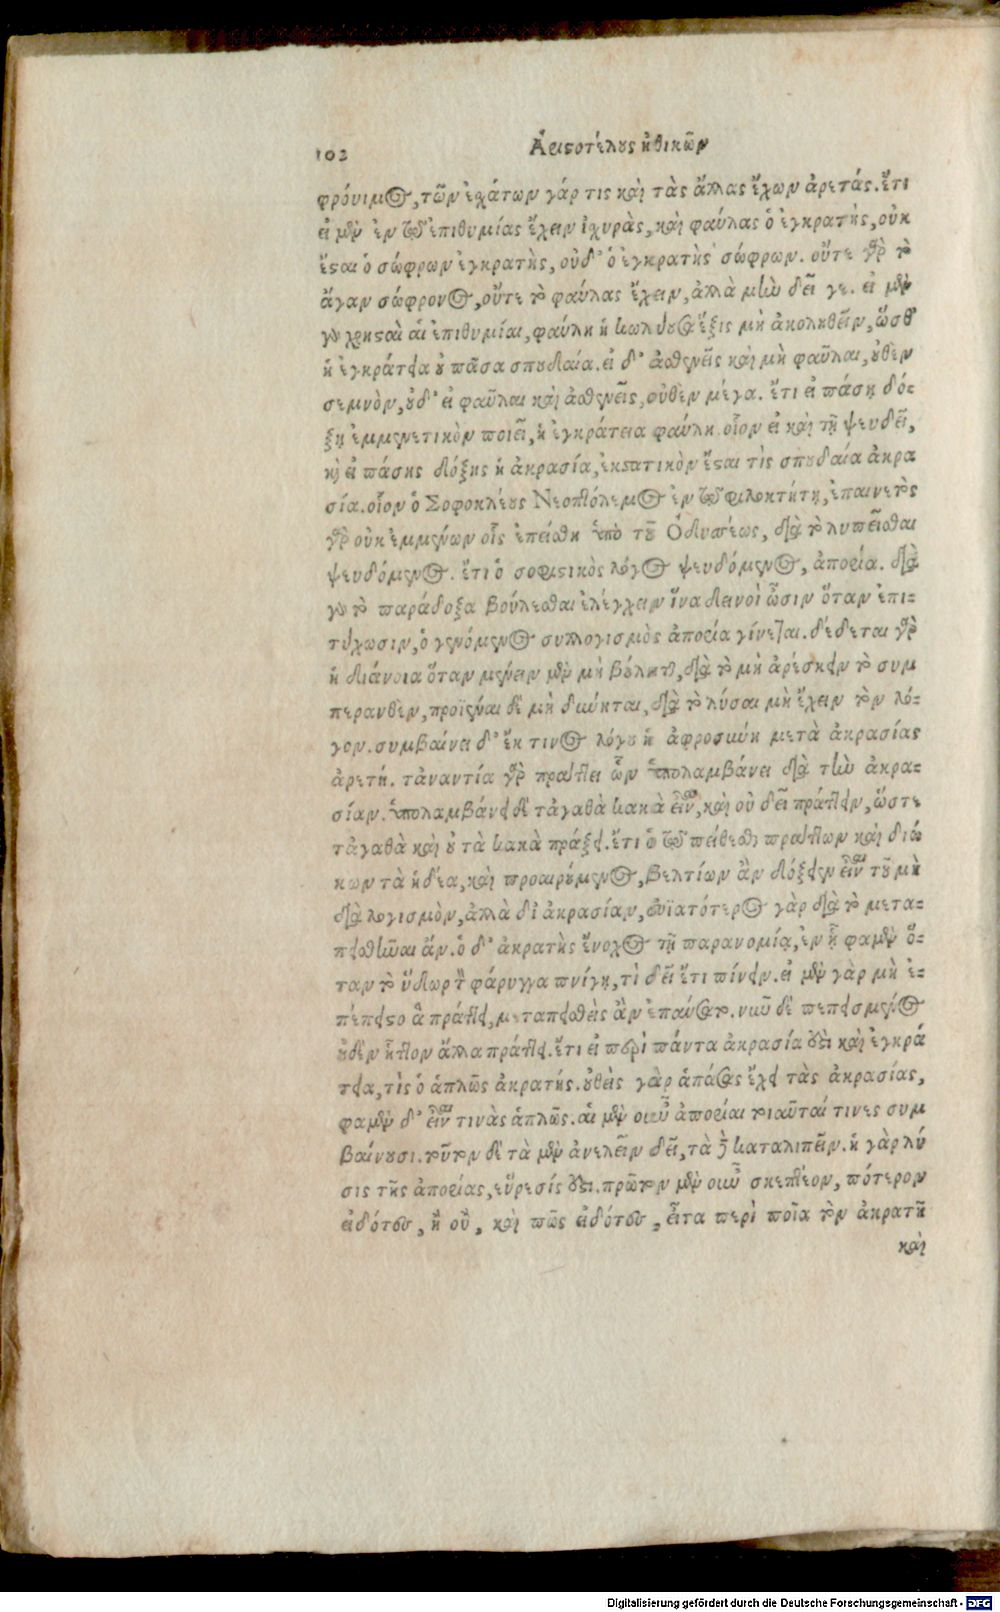 102
Ἀριστοτέλους ἠθικῶν
φρόνιμος, τῶν ἐσχάτων γάρ τις καὶ τὰς ἄλλας ἔχων ἀρετάς. ἔτι
εἰ μὲν ἐν τῷ ἐπιθυμίας ἔχειν ἰσχυρὰς, καὶ φαύλας ὁ ἐγκρατὴς, οὐκ
ἔσται ὁ σώφρων ἐγκρατὴς, οὐδ' ὁ ἐγκρατὴς σώφρων. οὔτε γὰρ τὸ
ἄγαν σώφρονος, οὔτε τὸ φαύλας ἔχειν, ἀλλὰ μὴν δεῖ γε. εἰ μὲν
γὰρ χρησταὶ αἱ ἐπιθυμίαι, φαύλη ἡ κωλύουσα ἕξις μὴ ἀκολουθεῖν, ὥσθ'
ἡ ἐγκράτεια οὐ πᾶσα σπουδαία. εἰ δ' ἀσθενεῖς καὶ μὴ φαῦλαι, οὐθὲν
σεμνὸν, οὐδ' εἰ φαῦλαι καὶ ἀσθενεῖς, οὐθὲν μέγα. ἔτι εἰ πάσῃ δό-
ξῃ ἐμμενετικὸν ποιεῖ, ἡ ἐγκράτεια φαύλη. οἷον εἰ καὶ τῇ ψευδεῖ,
καὶ εἰ πάσης δόξης ἡ ἀκρασία, ἐκστατικὸν ἔσται τὶς σπουδαία ἀκρα
σία. οἷον ὁ Σοφοκλέους Νεοπτόλεμος ἐν τῷ φιλοκτήτῃ, ἐπαινετὸς
γὰρ οὐκ ἐμμένων οἷς ἐπείσθη ὑπὸ τοῦ Ὀδυσσέως, διὰ τὸ λυπεῖσθαι
ψευδόμενος. ἔτι ὁ σοφιστικὸς λόγος ψευδόμενος, ἀπορία. διὰ
γὰρ τὸ παράδοξα βούλεσθαι ἐλέγχειν ἵνα δεινοὶ ὦσιν ὅταν ἐπι-
τύχωσιν, ὁ γενόμενος συλλογισμὸς ἀπορία γίνεται. δέδεται γὰρ
ἡ διάνοια ὅταν μένειν μὲν μὴ βούληται, διὰ τὸ μὴ ἀρέσκειν τὸ συμ
περανθὲν, προϊέναι δὲ μὴ δύνηται, διὰ τὸ λύσαι μὴ ἔχειν τὸν λό-
γον. συμβαίνει δ' ἔκ τινος λόγου ἡ ἀφροσύνη μετὰ ἀκρασίας
ἀρετή. τἀναντία γὰρ πράττει ὧν ὑπολαμβάνει διὰ τὴν ἀκρα-
σίαν. ὑπολαμβάνει δὲ τἀγαθὰ κακὰ εἶναι, καὶ οὐ δεῖ πράττειν, ὥστε
τἀγαθὰ καὶ οὐ τὰ κακὰ πράξει. ἔτι ὁ τῷ πείθεσθαι πράττων καὶ διώ
κων τὰ ἡδέα, καὶ προαιρούμενος, βελτίων ἂν δόξειεν εἶναι τοῦ μὴ
διὰ λογισμὸν, ἀλλὰ δι' ἀκρασίαν, εὐϊατότερος γὰρ διὰ τὸ μετα-
πεισθῆναι ἄν. ὁ δ' ἀκρατὴς ἔνοχος τῇ παρανομίᾳ, ἐν ᾗ φαμὲν ὅ-
ταν τὸ ὕδωρ τὸν φάρυγγα πνίγῃ, τὶ δεῖ ἔτι πίνειν. εἰ μὲν γὰρ μὴ ἐ-
πέπειστο ἃ πράττει, μεταπεισθεὶς ἂν ἐπαύσατο. νῦν δὲ πεπεισμένος
οὐδὲν ἧττον ἄλλα πράττει. ἔτι εἰ περὶ πάντα ἀκρασία ἐστὶ καὶ ἐγκρά
τεια, τὶς ὁ ἁπλῶς ἀκρατής. οὐθεὶς γὰρ ἁπάσας ἔχει τὰς ἀκρασίας,
φαμὲν δ' εἶναι τινὰς ἁπλῶς. αἱ μὲν οὖν ἀπορίαι τοιαῦταί τινες συμ
βαίνουσι. τούτων δὲ τὰ μὲν ἀνελεῖν δεῖ, τὰ δὲ καταλιπεῖν. ἡ γὰρ λύ
σις τῆς ἀπορίας, εὕρεσίς ἐστι. πρῶτον μὲν οὖν σκεπτέον, πότερον
εἰδότες, ἢ οὒ, καὶ πῶς εἰδότες, εἶτα περὶ ποῖα τὸν ἀκρατῆ
καὶ
Digitalisierung gefördert durch die Deutsche Forschungsgemeinschaft - DFG